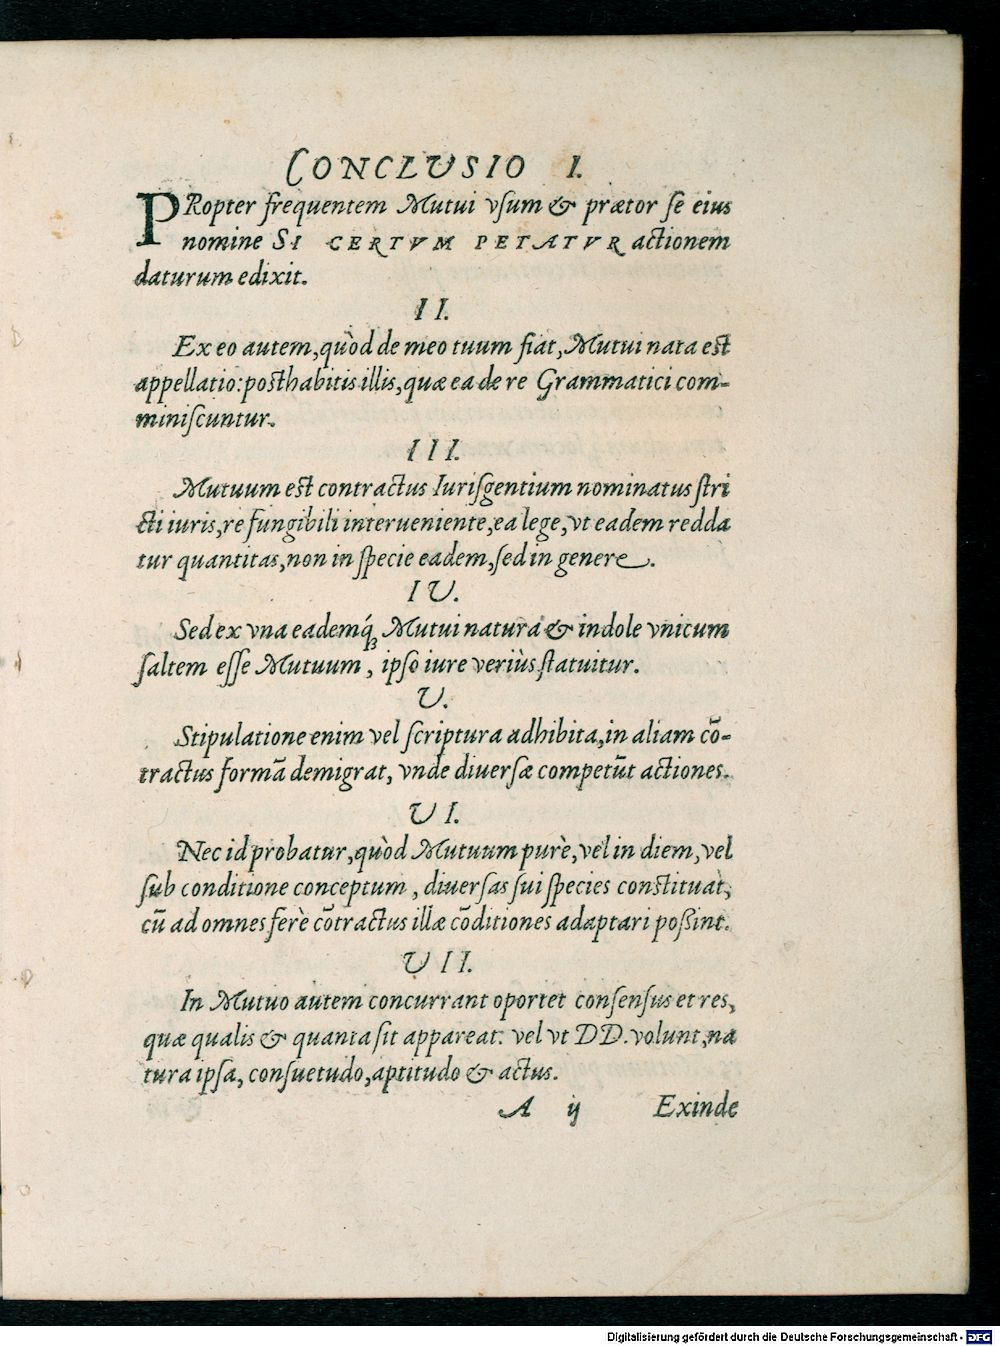 CONCLUSIO I.
PRopter frequentem Mutui vsum & prætor se eius
nomine SI CERTVM PETATVR actionem
daturum edixit.
II.
Ex eo autem, quòd de meo tuum fiat, Mutui nata est
appellatio: posthabitis illis, quæ ea de re Grammatici com-
miniscuntur.
III.
Mutuum est contractus Iurisgentium nominatus stri
cti iuris, re fungibili interueniente, ea lege, vt eadem redda
tur quantitas, non in specie eadem, sed in genere.
IU.
Sed ex vna eademq́; Mutui natura & indole vnicum
saltem esse Mutuum, ipso iure veriùs statuitur.
U.
Stipulatione enim vel scriptura adhibita, in aliam cō-
tractus formā demigrat, vnde diuersæ competūt actiones.
UI.
Nec id probatur, quòd Mutuum purè, vel in diem, vel
sub conditione conceptum, diuersas sui species constituat,
cū ad omnes ferè cōtractus illæ cōditiones adaptari poßint.
UII.
In Mutuo autem concurrant oportet consensus et res,
quæ qualis & quanta sit appareat: vel vt DD. volunt, na
tura ipsa, consuetudo, aptitudo & actus.
A ij Exinde
Digitalisierung gefördert durch die Deutsche Forschungsgemeinschaft - DFG